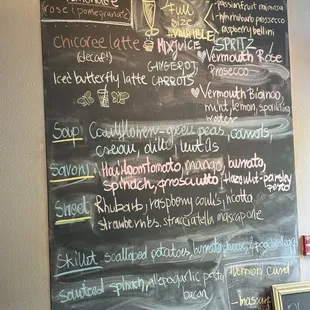 rose : pomegranate
full
size
AVAILABLE
passionfruit mimosa
rhubarb prosecco
raspberry bellini
chicoree latte
(decaf!)
MIX JUICE
GINGER
CARROTS
SPRITZ
Vermouth Rose
Prosecco
Iced butterfly latte
Vermouth Bianco,
mint, lemon, sparkling
water
Soup Cauliflower-green peas, carrots,
cream, dill,
Savory Heirloom Tomato, mango, burrata,
spinach, prosciutto, hazelnut-parsley
pesto
Sweet Rhubarb, raspberry coulis, ricotta
strawberries, stracciatella mascarpone
Skillet scalloped potatoes, burrato
Sauteed spinach, garlic pesto
bacon